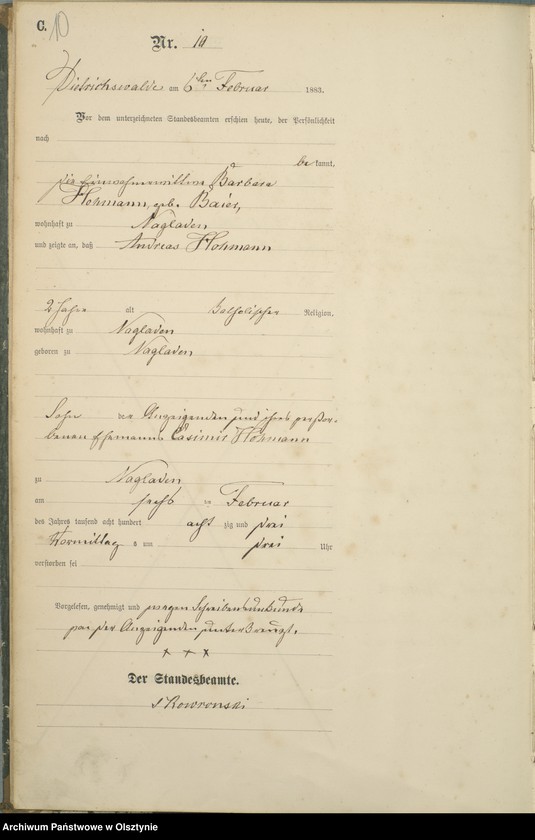 C. 10
Nr. 10
Dietrichswalde am 6ten Februar 1883.
Vor dem unterzeichneten Standesbeamten erschien heute, der Persönlichkeit
nach
bekannt,
die Einwohnerwittwe Barbara
Hohmann, geb. Baier,
wohnhaft zu Nagladen
und zeigte an, daß Andreas Hohmann
2 Jahre alt Katholischer Religion,
wohnhaft zu Nagladen
geboren zu Nagladen
Sohn der Anzeigenden und ihres verstor-
benen Ehemanns Casimir Hohmann
zu Nagladen
am sechs ten Februar
des Jahres tausend acht hundert acht zig und drei
Vormittag s um drei Uhr
verstorben sei
Vorgelesen, genehmigt und wegen Schreibensunkunde
von der Anzeigenden unterkreuzt.
+ + x
Der Standesbeamte.
Skowronski
Archiwum Państwowe w Olsztynie